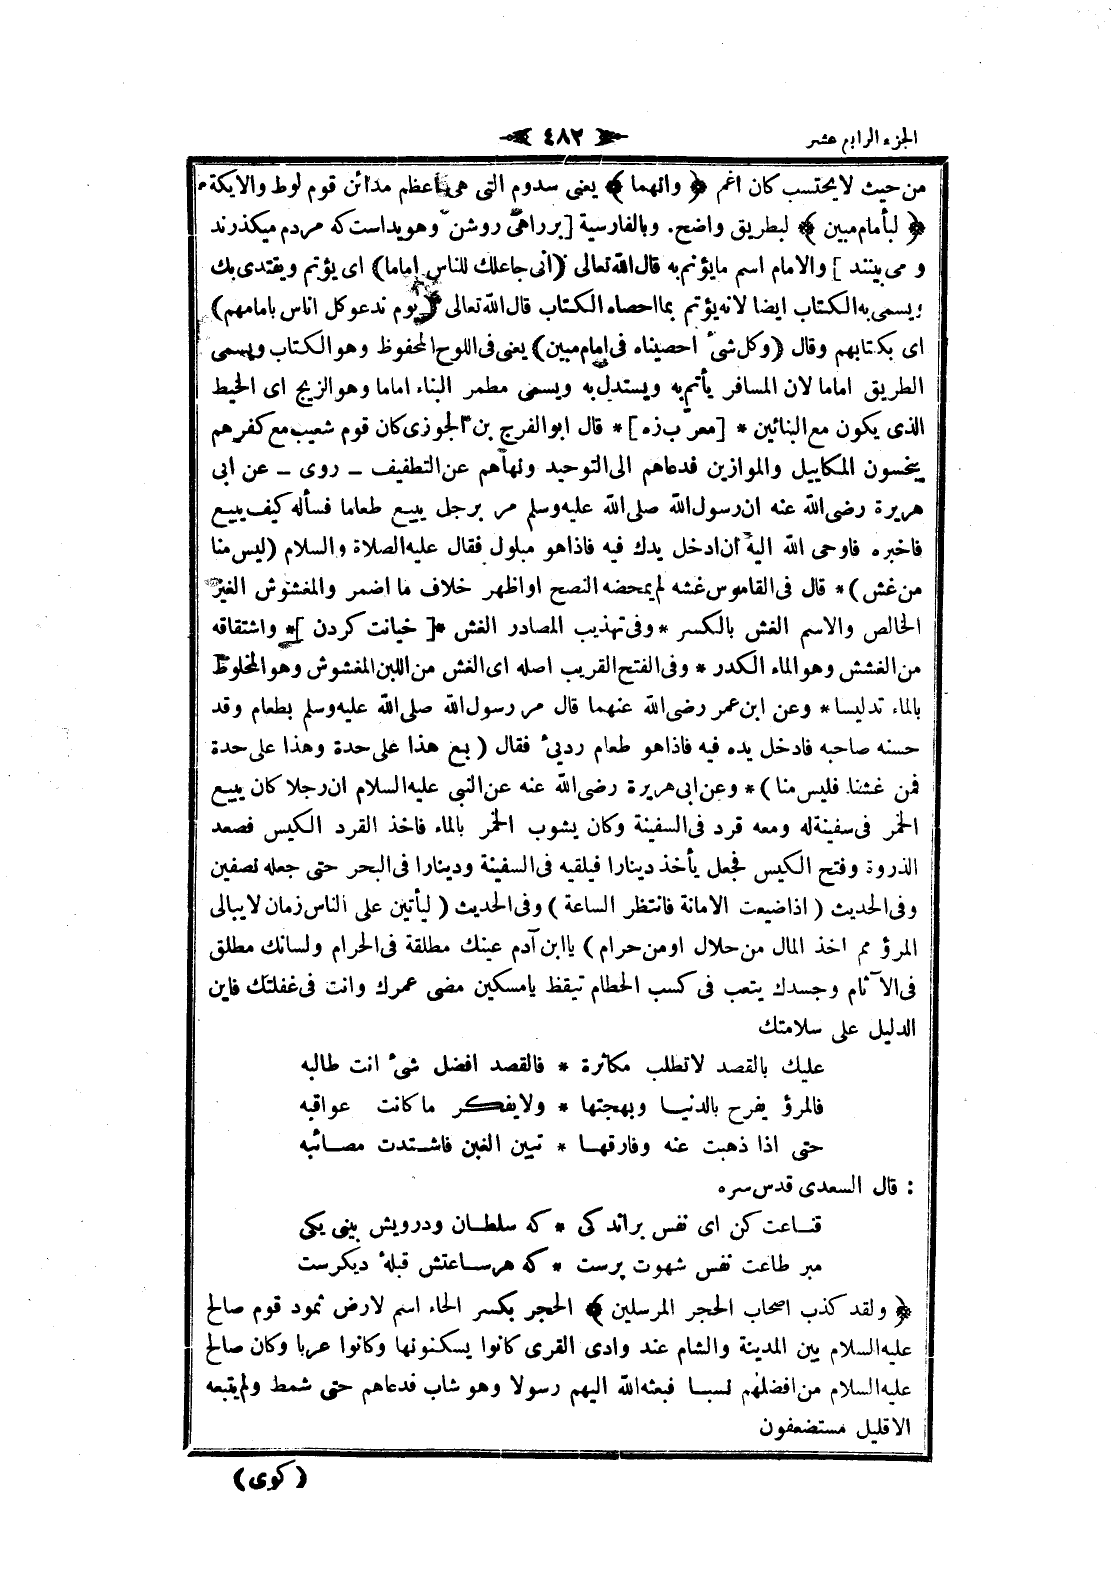 الجزء الرابع عشر
٤٨٢
من حيث لا يحتسب كان اغم ﴿ وانهما ﴾ يعنى سدوم التى هى اعظم مدائن قوم لوط والايكة
﴿ لبأمام مبين ﴾ لبطريق واضح. وبالفارسية [ برراهى روشن وهويداست كه مردم ميكذرند
و مى بينند ] والامام اسم مايؤتم به قال الله تعالى (انى جاعلك للناس اماما) اى يؤتم ويقتدى بك
ويسمى به الكتاب ايضا لانه يؤتم بما احصاه الكتاب قال الله تعالى (يوم ندعو كل اناس بامامهم)
اى بكتابهم وقال (وكل شىء احصيناه فى امام مبين) يعنى فى اللوح المحفوظ وهو الكتاب ويسمى
الطريق اماما لان المسافر يأتم به ويستدل به ويسمى مطمر البناء اماما وهو الزيج اى الخيط
الذى يكون مع البنائين * [ معرب زه ] * قال ابو الفرج بن الجوزى كان قوم شعيب مع كفرهم
يبخسون المكاييل والموازين فدعاهم الى التوحيد ونهاهم عن التطفيف ـ روى ـ عن ابى
هريرة رضى الله عنه ان رسول الله صلى الله عليه وسلم مر برجل يبيع طعاما فسأله كيف يبيع
فاخبره فاوحى الله اليه ان ادخل يدك فيه فاذا هو مبلول فقال عليه الصلاة والسلام (ليس منا
من غش) * قال فى القاموس غشه لم يمحضه النصح او اظهر خلاف ما اضمر والمغشوش الغير
الخالص والاسم الغش بالكسر * وفى تهذيب المصادر الغش * [ خيانت كردن ] * واشتقاقه
من الغشش وهو الماء الكدر * وفى الفتح القريب اصله اى الغش من اللبن المغشوش وهو المخلوط
بالماء تدليسا * وعن ابن عمر رضى الله عنهما قال مر رسول الله صلى الله عليه وسلم بطعام وقد
حسنه صاحبه فادخل يده فيه فاذا هو طعام رديئ فقال ( بع هذا على حدة وهذا على حدة
فمن غشنا فليس منا ) * وعن ابى هريرة رضى الله عنه عن النبى عليه السلام ان رجلا كان يبيع
الخمر فى سفينة له ومعه قرد فى السفينة وكان يشوب الخمر بالماء فاخذ القرد الكيس فصعد
الذروة وفتح الكيس فجعل يأخذ دينارا فيلقيه فى السفينة ودينارا فى البحر حتى جعله نصفين
وفى الحديث ( اذا ضيعت الامانة فانتظر الساعة ) وفى الحديث ( ليأتين على الناس زمان لا يبالى
المرؤ مم اخذ المال من حلال او من حرام ) يا ابن آدم عينك مطلقة فى الحرام ولسانك مطلق
فى الآثام وجسدك يتعب فى كسب الحطام تيقظ يا مسكين مضى عمرك وانت فى غفلتك فاين
الدليل على سلامتك
عليك بالقصد لا تطلب مكاثرة * فالقصد افضل شىء انت طالبه
فالمرؤ يفرح بالدنيا وبهجتها * ولا يفكر ما كانت عواقبه
حتى اذا ذهبت عنه وفارقها * تبين الغبن فاشتدت مصائبه
: قال السعدى قدس سره
قناعت كن اى نفس براندكى * كه سلطان ودرويش بينى يكى
مبر طاعت نفس شهوت پرست * كه هرساعتش قبلهء ديكرست
﴿ ولقد كذب اصحاب الحجر المرسلين ﴾ الحجر بكسر الحاء اسم لارض ثمود قوم صالح
عليه السلام بين المدينة والشام عند وادى القرى كانوا يسكنونها وكانوا عربا وكان صالح
عليه السلام من افضلهم نسبا فبعثه الله اليهم رسولا وهو شاب فدعاهم حتى شمط ولم يتبعه
الا قليل مستضعفون
(كوى)